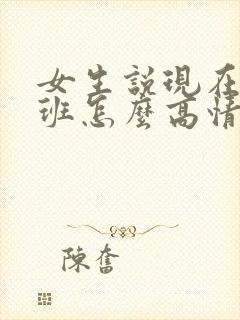 女生說現在
班怎麼高情
陳奮